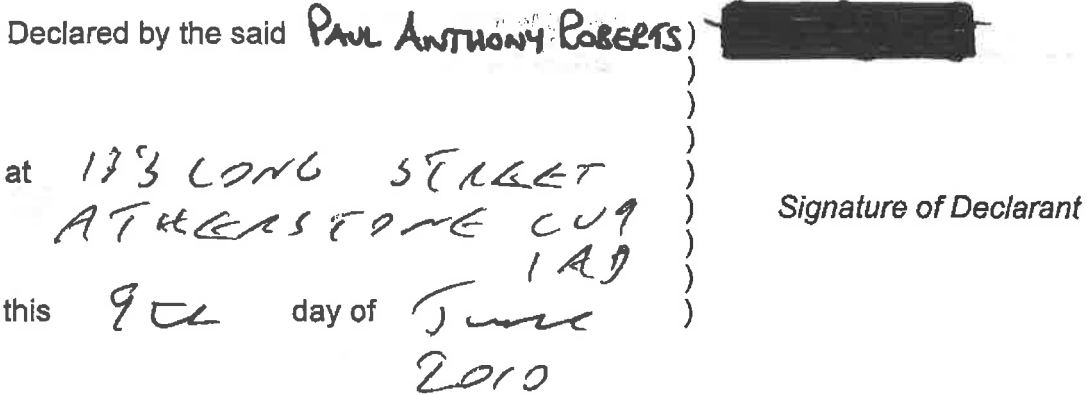 Declared by the said PAUL ANTHONY ROBERTS )
)
)
)
at 133 LONG STREET )
ATHERSTONE CV9 ) Signature of Declarant
1AD )
)
this 9th day of June )
2010